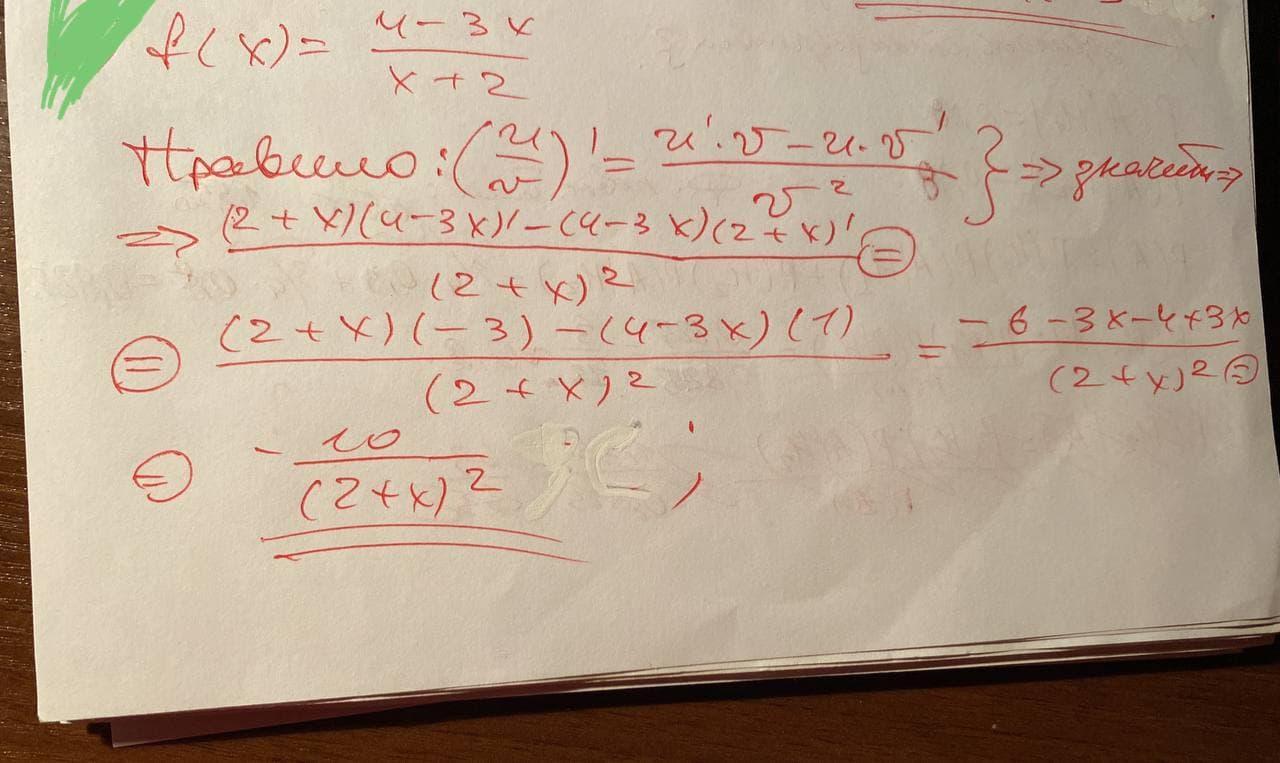 f(x) = (4 - 3x)/(x + 2)
Правило: (u/v)' = (u'·v - u·v')/v² } => значить =>
=> ((2 + x)(4 - 3x)' - (4 - 3x)(2 + x)')/(2 + x)² =
= ((2 + x)(-3) - (4 - 3x)(1))/(2 + x)² = (-6 - 3x - 4 + 3x)/(2 + x)² =
= -10/(2 + x)² ;